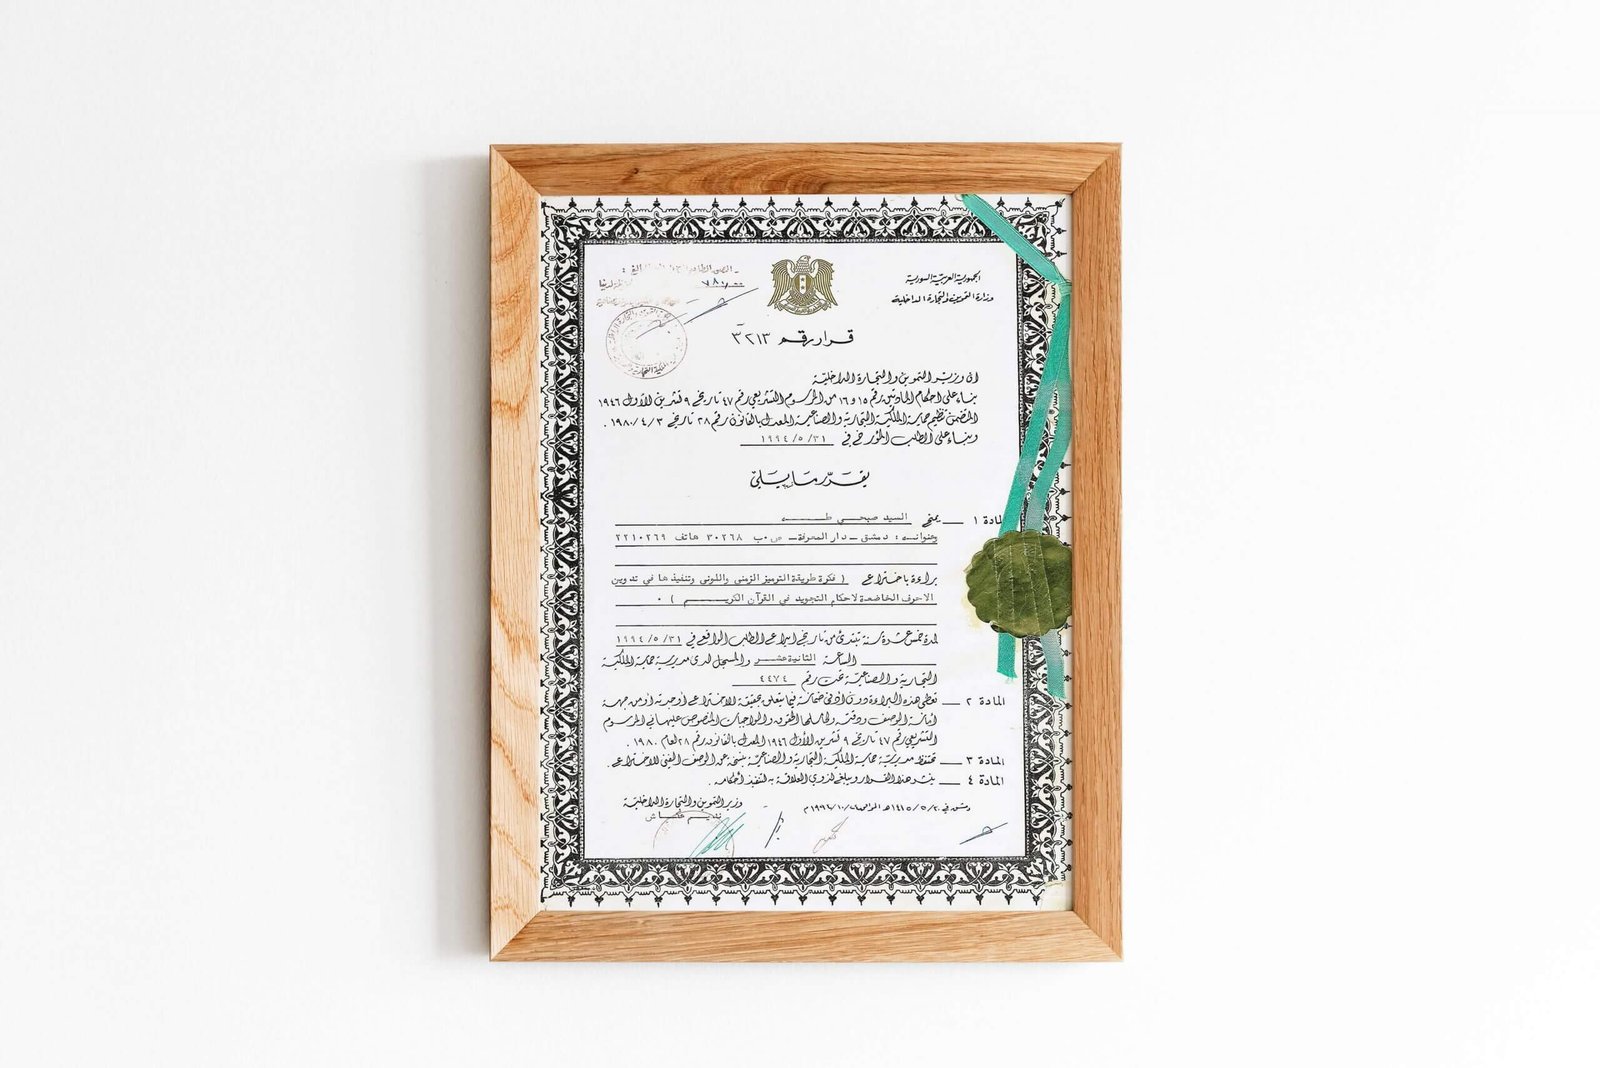 الجمهورية العربية السورية
وزارة التموين والتجارة الداخلية
قرار رقم ٣٢١٣
ان وزير التموين والتجارة الداخلية
بناء على احكام المادتين رقم ١٥ و ١٦ من المرسوم التشريعي رقم ٤٧ تاريخ ٩ تشرين الأول ١٩٤٦
المتضمن تنظيم حماية الملكية التجارية والصناعية المعدل بالقانون رقم ٢٨ تاريخ ١٩٨٠/٤/٣ .
وبناء على الطلب المؤرخ في ١٩٩٤/٥/٣١
يقرر ما يلي
المادة ١ ـ يمنح السيد صبحي طه
وعنوانه : دمشق ـ دار المعرفة ـ ص.ب ٣٠٢٦٨ هاتف ٢٢١٠٢٦٩
براءة باختراع ( فكرة طريقة الترميز الزمني واللوني وتنفيذها في تدوين
الاحرف الخاضعة لاحكام التجويد في القرآن الكريم ) ٠
لمدة خمس عشرة سنة تبتدئ من تاريخ ايداع الطلب الواقع في ١٩٩٤/٥/٣١
الساعة الثانية عشر والمسجل لدى مديرية حماية الملكية
التجارية والصناعية تحت رقم ٤٤٧٤
المادة ٢ ـ تعطى هذه البراءة دون ادنى ضمانة فيما يتعلق بحقيقة الاختراع أو جدته أو من جهة
امانة الوصف ودقته ولحاملها الحقوق والواجبات المنصوص عليها في المرسوم
التشريعي رقم ٤٧ تاريخ ٩ تشرين الأول ١٩٤٦ المعدل بالقانون رقم ٢٨ لعام ١٩٨٠ .
المادة ٣ ـ تحتفظ مديرية حماية الملكية التجارية والصناعية بنسخة عن الوصف الفني للاختراع .
المادة ٤ ـ ينشر هذا القرار ويبلغ لذوي العلاقة به لتنفيذ أحكامه .
دمشق في ١٤١٥/٥/٢٠هـ الموافق
وزير التموين والتجارة الداخلية
نديم عكاش